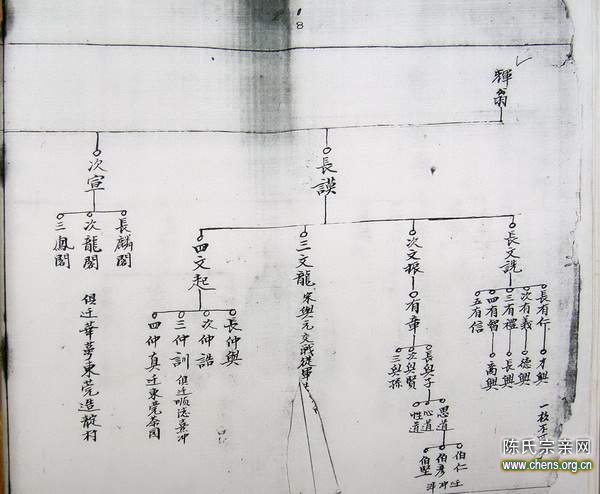 8
輝翁
長謨
次宣
長文詵
次文振
三文龍 宋與元交戰從軍
四文起
長麟閣
次龍閣
三鳳閣
但迁華夢東莞造
村
長有仁
次有義
三有禮
四有智
五有信
才興
德興
長興
高興
有章
長與子
次與賢
三與孫
思道
心道
性道
伯仁迁
伯彥冲
伯堅
長仲輿
次仲誥
三仲訓 但迁順法
冲
四仲真 迁東莞茶园
陈氏宗亲网
www.chens.org.cn